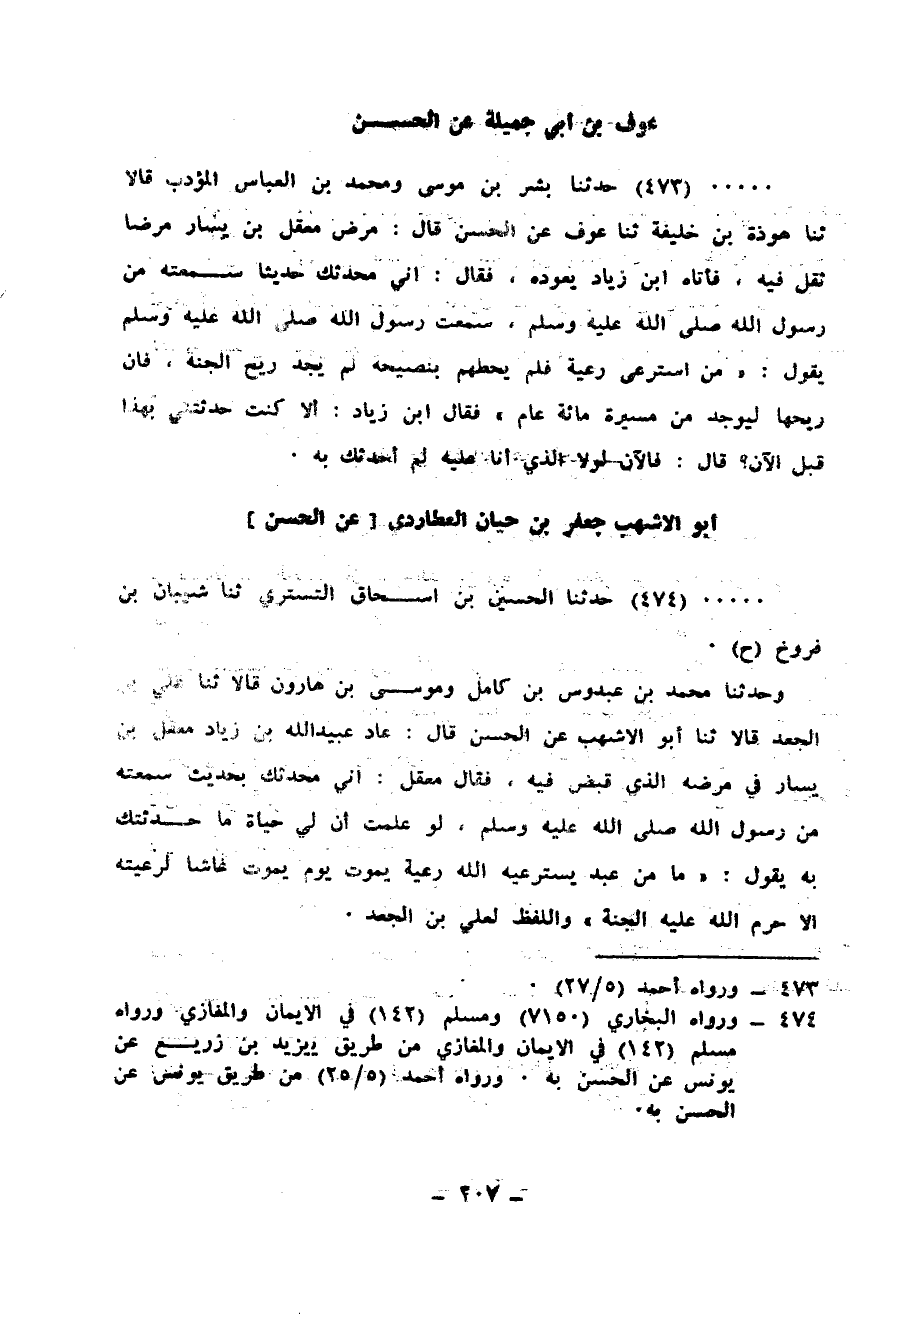 عوف بن أبي جميلة عن الحســـن
٠٠٠٠٠ (٤٧٣) حدثنا بشر بن موسى ومحمد بن العباس المؤدب قالا
ثنا هوذة بن خليفة ثنا عوف عن الحسن قال : مرض معقل بن يسار مرضا
ثقل فيه ، فأتاه ابن زياد يعوده ، فقال : اني محدثك حديثا ســـمعته من
رسول الله صلى الله عليه وسلم ، سمعت رسول الله صلى الله عليه وسلم
يقول : « من استرعى رعية فلم يحطهم بنصيحه لم يجد ريح الجنة ، فان
ريحها ليوجد من مسيرة مائة عام » فقال ابن زياد : ألا كنت حدثتني بهذا
قبل الآن؟ قال : فالآن لولا الذي أنا عليه لم أحدثك به ٠
أبو الاشهب جعفر بن حيان العطاردي [ عن الحسن ]
٠٠٠٠٠ (٤٧٤) حدثنا الحسين بن اســـحاق التستري ثنا شيبان بن
فروخ (ح) ٠
وحدثنا محمد بن عبدوس بن كامل وموســـى بن هارون قالا ثنا علي بن
الجعد قالا ثنا أبو الاشهب عن الحسن قال : عاد عبيدالله بن زياد معقل بن
يسار في مرضه الذي قبض فيه ، فقال معقل : اني محدثك بحديث سمعته
من رسول الله صلى الله عليه وسلم ، لو علمت أن لي حياة ما حـــدثتك
به يقول : « ما من عبد يسترعيه الله رعية يموت يوم يموت غاشا لرعيته
الا حرم الله عليه الجنة » واللفظ لعلي بن الجعد ٠
٤٧٣ ـ ورواه أحمد (٢٧/٥) ٠
٤٧٤ ـ ورواه البخاري (٧١٥٠) ومسلم (١٤٢) في الايمان والمغازي ورواه
مسلم (١٤٢) في الايمان والمغازي من طريق يزيد بن زريـــع عن
يونس عن الحسن به ٠ ورواه أحمد (٢٥/٥) من طريق يونس عن
الحسن به٠
ـ ٢٠٧ ـ